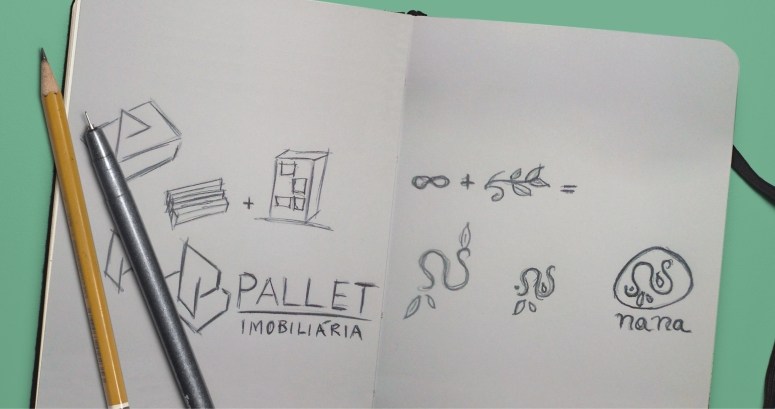 +
PALLET
IMOBILIÁRIA
∞ + =
nana